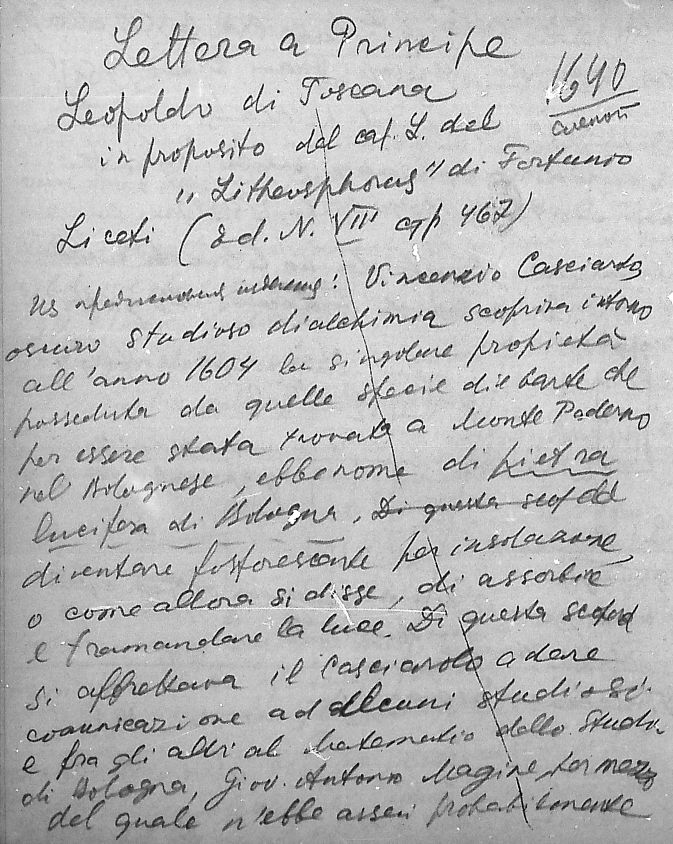 Lettera a Principe
Leopoldo di Toscana
1640
in proposito del cap. L. del
"Litheosphorus" di Fortunio
Liceti (Ed. N. VIII стр 467)
Из предисловия : Vincenzio Casciarolo
oscuro studioso di alchimia scopriva intorno
all'anno 1604 la singolare propietà
posseduta da quelle specie di barite che
per essere stata trovata a Monte Paderno
nel Bolognese, ebbe nome di pietra
lucifera di Bologna, Di questa scop del
diventare fosforescente per insolazione,
o come allora si disse, di assorbire
e tramandare la luce. Di questa scoperta
si affrettava il Casciarolo a dare
comunicazione ad alcuni studiosi
e fra gli altri al Matematico dello Studio
di Bologna, Giov. Antonio Magini, per mezzo
del quale n'ebbe assai probabilmente